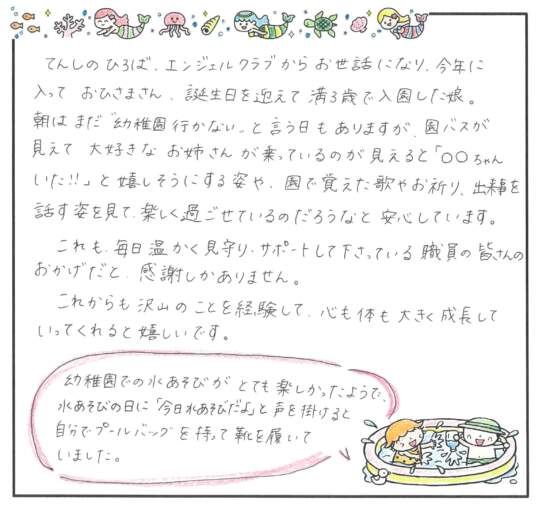 てんしのひろば、エンジェルクラブからお世話になり、今年に
入って おひさまさん、誕生日を迎えて 満3歳で入園した娘。
朝は まだ “幼稚園 行かない” と 言う日もありますが、園バスが
見えて 大好きな お姉さんが乗っているのが 見えると「〇〇ちゃん
いた!!」と 嬉しそうにする姿や、園で覚えた歌やお祈り、出来事を
話す姿を見て、楽しく過ごせているのだろうなと 安心しています。
これも、毎日 温かく見守り・サポートして下さっている 職員の皆さんの
おかげだと、感謝しかありません。
これからも 沢山のことを経験して、心も体も 大きく成長して
いってくれると嬉しいです。
幼稚園での水あそびが とても楽しかったようで、
水あそびの日に「今日水あそびだよ」と声を掛けると
自分でプールバッグを持って 靴を履いて
いました。